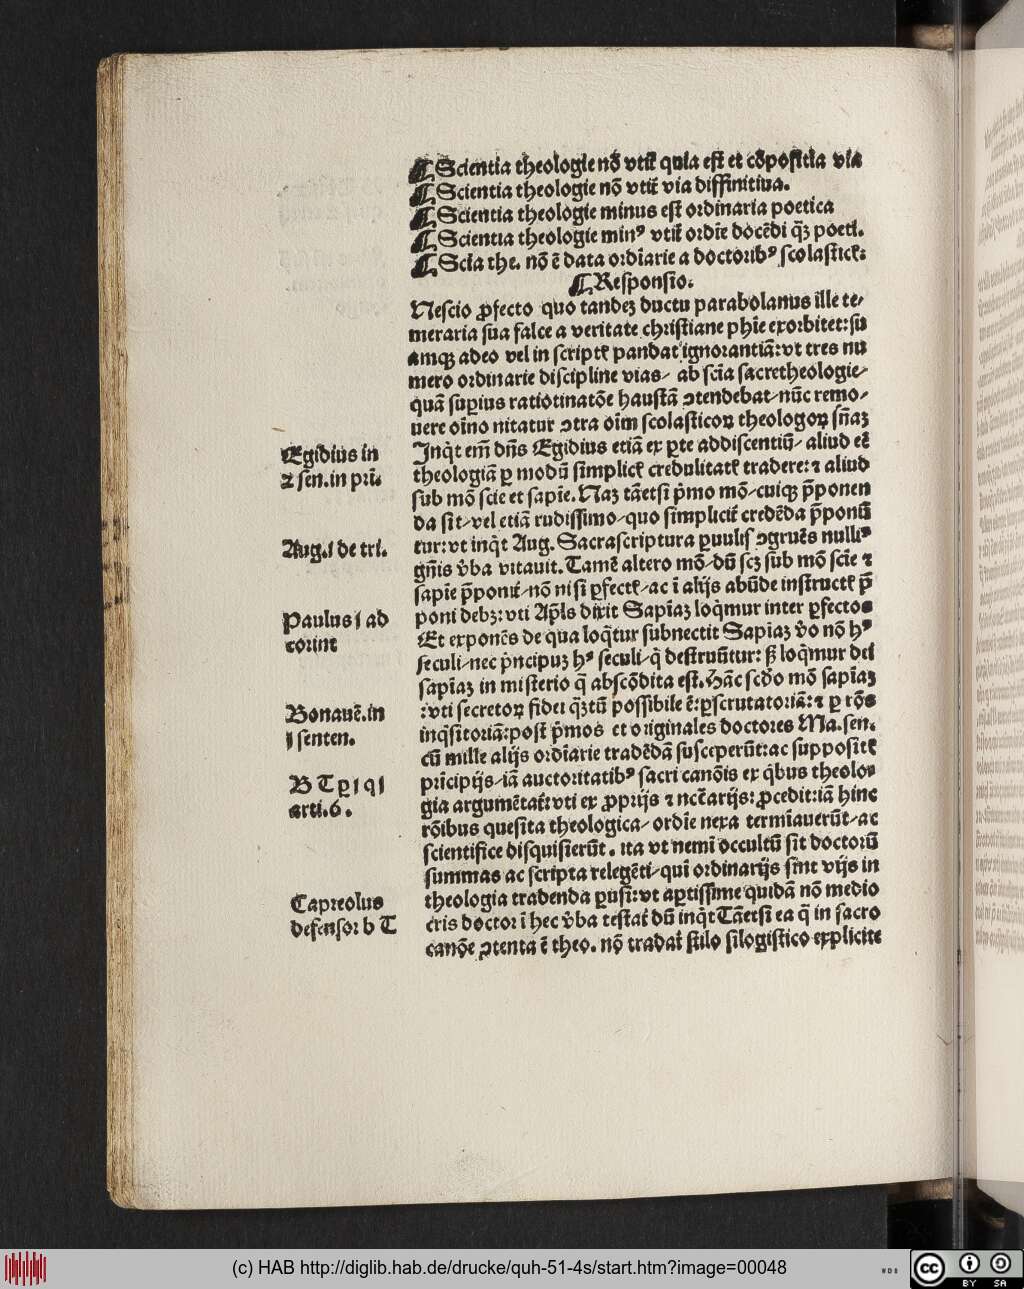 ¶ Scientia theologie nō vtit᷑ quia est et cōpositia via
¶ Scientia theologie nō vtit᷑ via diffinitiua.
¶ Scientia theologie minus est ordinaria poetica
¶ Scientia theologie minꝰ vtit᷑ ordīe docēdi q̄ꝫ poeti.
¶ Scīa the. nō ē data ordīarie a doctoribꝰ scolastic᷑:
¶ Responsio.
Nescio ꝓfecto quo tandeꝫ ductu parabolanus ille te⸗
meraria sua falce a veritate christiane phīe exorbitet: su
amqꝫ adeo vel in script᷑ pandat ignorantiā: vt tres nu
mero ordinarie discipline vias/ ab scīa sacretheologie/
quā supius ratiotinatōe haustā ↄtendebat/ nūc remo⸗
uere oīno nitatur ↄtra oīm scolasticoꝝ theologoꝝ sn̄aꝫ
Egidius in
2 sen. in pri.
Inq̇t em̄ dn̄s Egidius etiā ex ꝑte addiscentiū/ aliud eē
theologiā ꝑ modū simplic᷑ credulitat᷑ tradere: ⁊ aliud
sub mō scīe et sapīe. Naꝫ tāetsi p̄mo mō/ cuiqꝫ p̄ponen
da sit/ vel etiā rudissimo/ quo simplicit᷑ credēda p̄ponū
Aug. 1 de tri.
tur: vt inq̇t Aug. Sacrascriptura ꝑuulis ↄgruēs nulliꝰ
gn̄is v̄ba vitauit. Tamē altero mō/ dū scꝫ sub mō scīe ⁊
sapīe p̄ponit᷑/ nō nisi ꝑfect᷑/ ac ī alijs abūde instruct᷑ p̄
Paulus 1 ad
corint
poni debꝫ: vti Apl̄s dixit Sapīaꝫ loq̇mur inter ꝑfectos
Et exponēs de qua loq̇tur subnectit Sapīaꝫ v̄o nō hꝰ
seculi/ nec p̄ncipuꝫ hꝰ seculi/ q̇ destruūtur: sꝫ loq̇mur dei
sapīaꝫ in misterio q̄ abscōdita est. Hāc scd̄o mō sapīaꝫ
Bonauē. in
1 senten.
: vti secretoꝝ fidei q̄ꝫtū possibile ē: ꝑscrutatoriā: ⁊ ꝑ rōes
inq̇sitoriā: post p̄mos et originales doctores Ma. sen.
cū mille alijs ordīarie tradēdā susceperūt: ac supposit᷑
B T ꝑ 1 q 1
arti. 6.
prīcipijs/ iā auctoritatibꝰ sacri canōis ex q̇bus theolo⸗
gia argumētat᷑: vti ex ꝓprijs ⁊ nc̄carijs: ꝓcedit: iā hinc
rōibus quesita theologica/ ordīe nexa termīauerūt/ ac
scientifice disquisierūt. ita vt nemī occultū sit doctorū
summas ac scripta relegēti/ qui ordinarijs sint vijs in
Capreolus
defensor b T
theologia tradenda ꝑusi: vt aptissime quidā nō medio
cris doctor ī hec v̄ba testat᷑ dū inq̇t Tāetsi ea q̄ in sacro
canōe ↄtenta ē theo. nō tradat᷑ stilo silogistico explicite
(c) HAB http://diglib.hab.de/drucke/quh-51-4s/start.htm?image=00048
WDB
CC BY SA